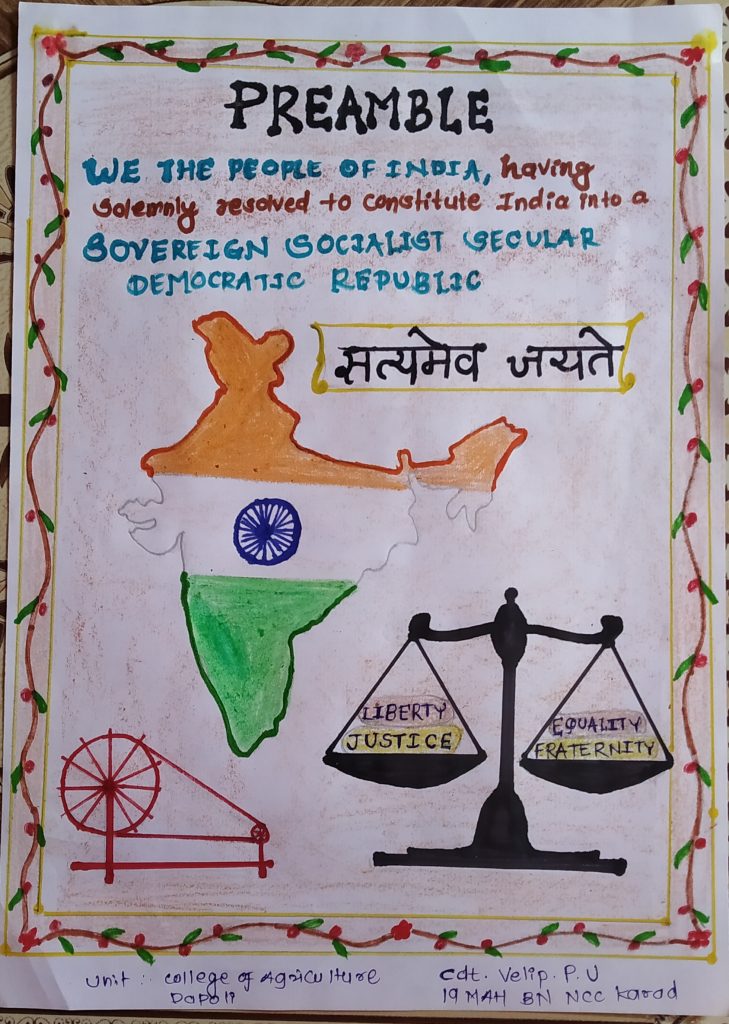 PREAMBLE
WE THE PEOPLE OF INDIA, having
solemnly resolved to constitute India into a
SOVEREIGN SOCIALIST SECULAR
DEMOCRATIC REPUBLIC
सत्यमेव जयते
LIBERTY
JUSTICE
EQUALITY
FRATERNITY
Unit :- College of Agriculture
Dapoli
Cdt. Velip. P. U
19 MAH BN NCC Karad